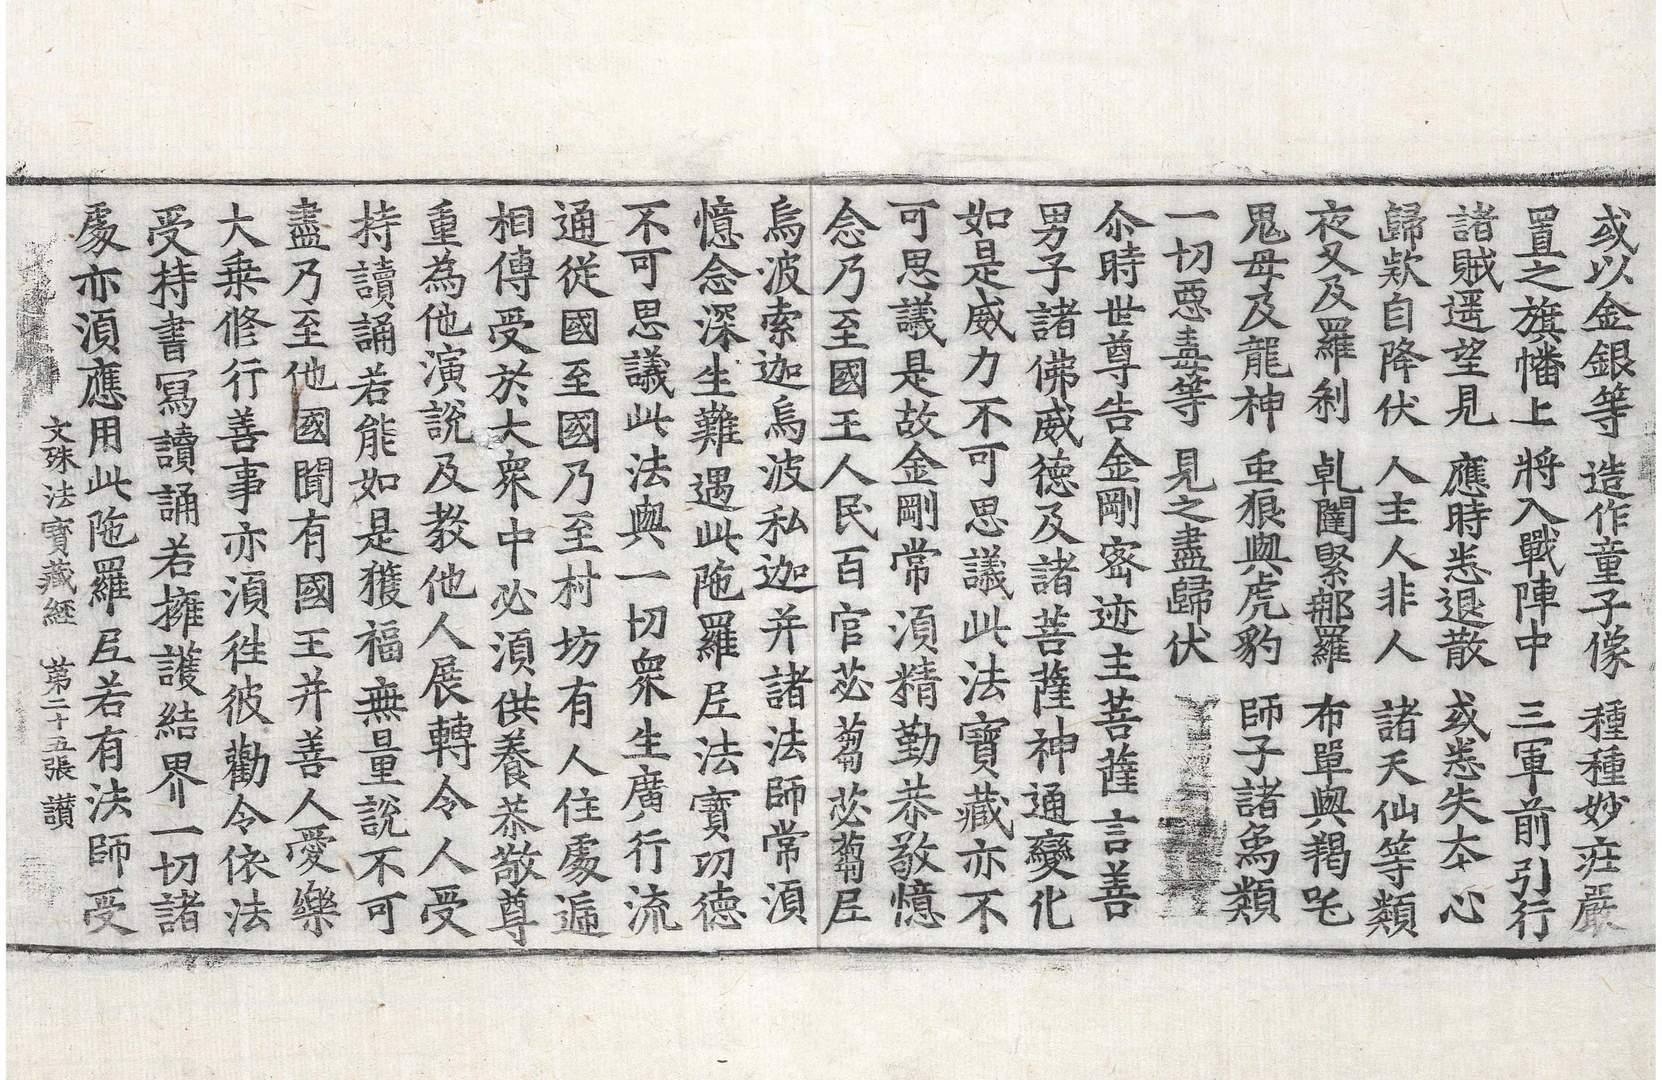 或以金銀等　造作童子像　種種妙莊嚴
置之旗幡上　將入戰陣中　三軍前引行
諸賊遥望見　應時悉退散　或悉失本心
歸欵自降伏　人主人非人　諸天仙等類
夜叉及羅刹　乹闥緊那羅　布單與羯吒
鬼母及龍神　䖝狼與虎豹　師子諸鳥類
一切惡毒等　見之盡歸伏
尒時世尊告金剛密迹主菩薩言善
男子諸佛威德及諸菩薩神通變化
如是威力不可思議此法寶藏亦不
可思議是故金剛常湏精勤恭敬憶
念乃至國王人民百官苾蒭苾蒭尼
烏波索迦烏波私迦并諸法師常湏
憶念深生難遇此陁羅尼法寶功德
不可思議此法與一切衆生廣行流
通從國至國乃至村坊有人住處遞
相傳受於大衆中必湏供養恭敬尊
重為他演說及教他人展轉令人受
持讀誦若能如是獲福無量說不可
盡乃至他國聞有國王并善人愛樂
大乗修行善事亦湏徃彼勸令依法
受持書寫讀誦若擁護結界一切諸
處亦湏應用此陁羅尼若有法師受
文殊法寶藏經　第二十五張　讃